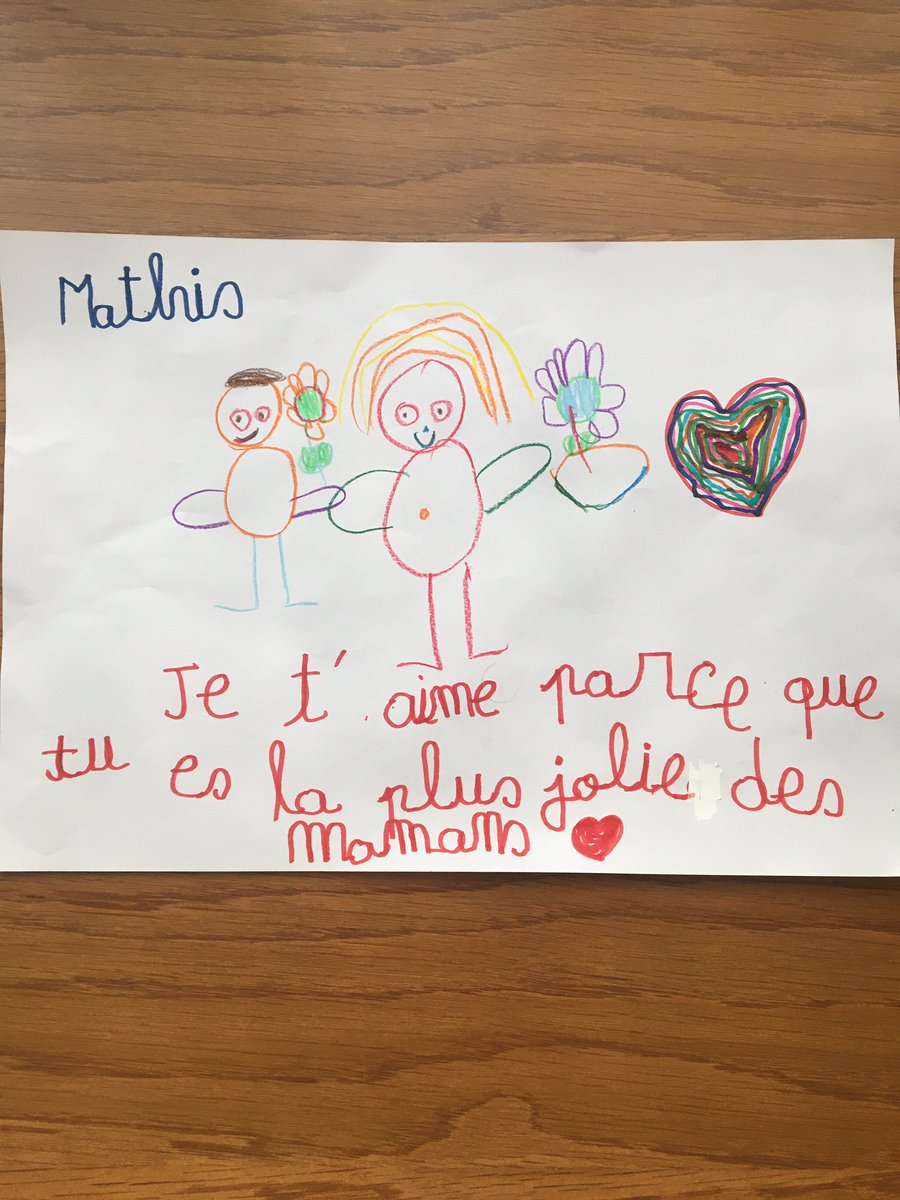 Mathis
Je t'aime parce que
tu es la plus jolie des
mamans